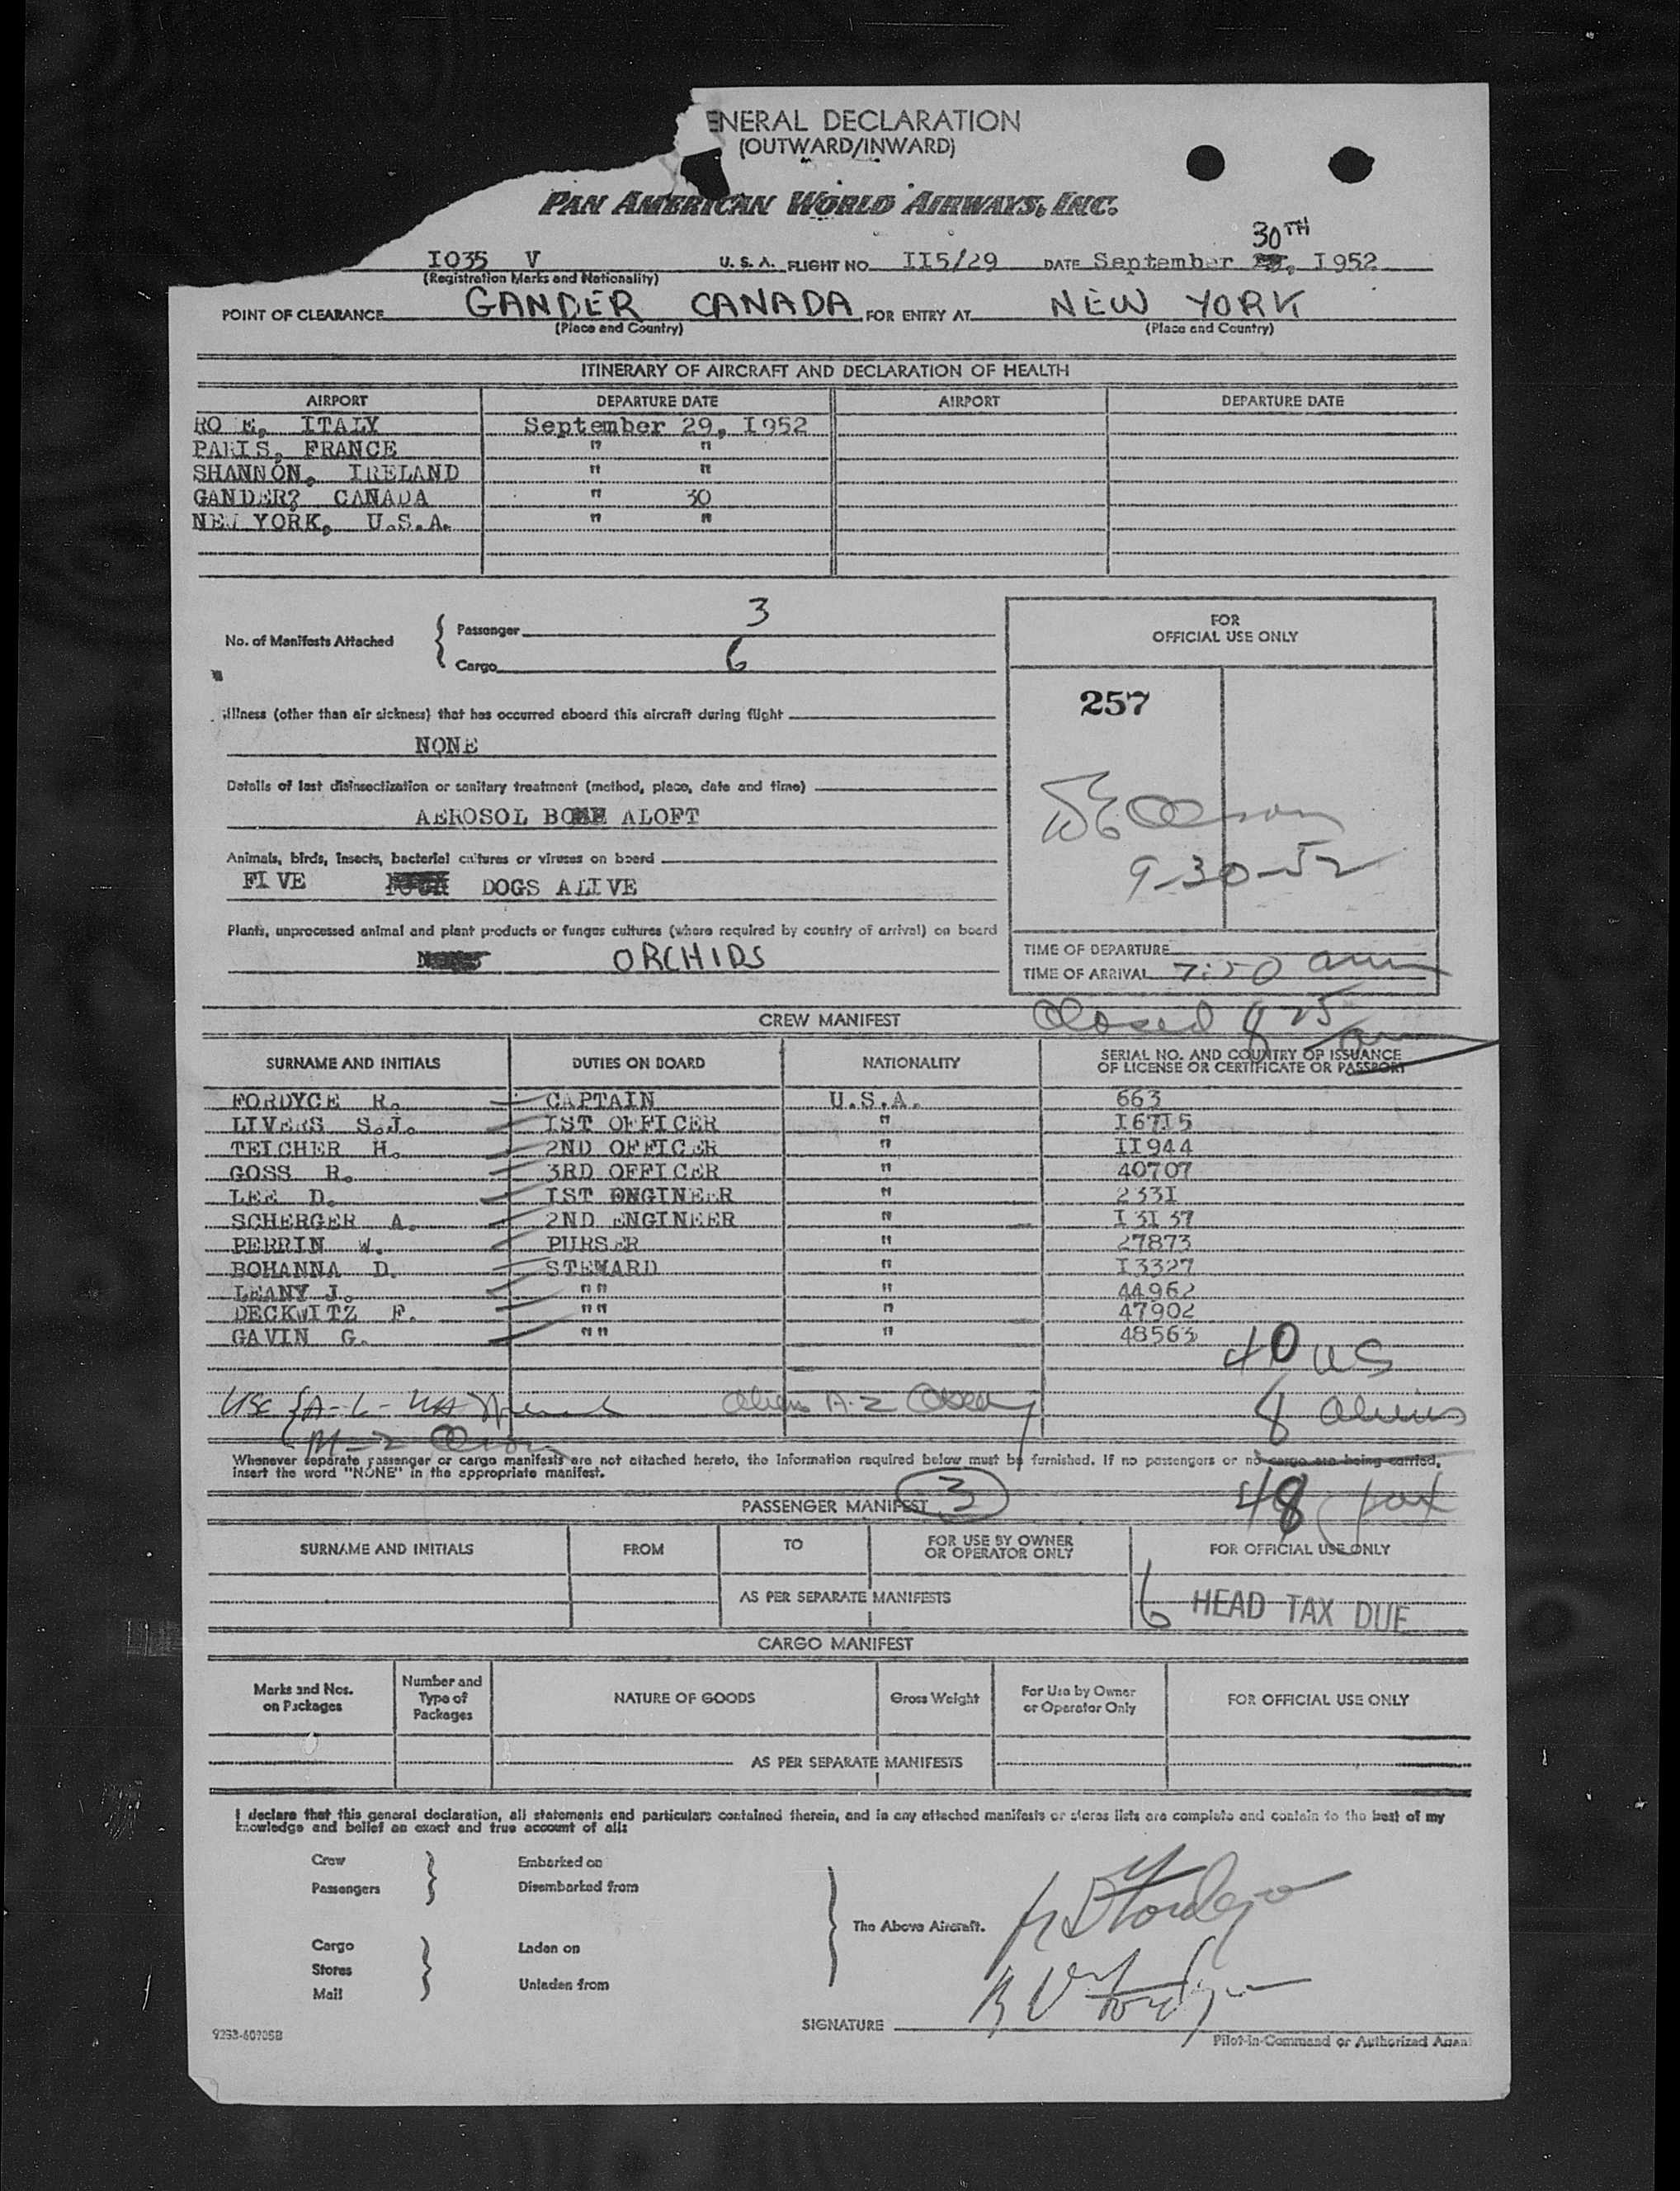 ENERAL DECLARATION
(OUTWARD/INWARD)
PAN AMERICAN WORLD AIRWAYS, INC.
30TH
I035 V U. S. A. FLIGHT NO. II5/29 DATE September , I952
(Registration Marks and Nationality)
POINT OF CLEARANCE GANDER CANADA FOR ENTRY AT NEW YORK
(Place and Country) (Place and Country)
ITINERARY OF AIRCRAFT AND DECLARATION OF HEALTH
AIRPORT DEPARTURE DATE AIRPORT DEPARTURE DATE
RO E, ITALY September 29, I952
PARIS, FRANCE " "
SHANNON, IRELAND " "
GANDER? CANADA " 30
NEW YORK, U.S.A. " "
No. of Manifests Attached { Passenger 3
Cargo 6
FOR
OFFICIAL USE ONLY
257
Illness (other than air sickness) that has occurred aboard this aircraft during flight
NONE
Details of last disinsectization or sanitary treatment (method, place, date and time)
AEROSOL BOMB ALOFT
Animals, birds, insects, bacterial cultures or viruses on board
FIVE DOGS ALIVE
9-30-52
Plants, unprocessed animal and plant products or fungus cultures (where required by country of arrival) on board
ORCHIDS
TIME OF DEPARTURE
TIME OF ARRIVAL 7:50 am
Closed 8 25 am
CREW MANIFEST
SURNAME AND INITIALS DUTIES ON BOARD NATIONALITY SERIAL NO. AND COUNTRY OF ISSUANCE OF LICENSE OR CERTIFICATE OR PASSPORT
FORDYCE R. CAPTAIN U.S.A. 663
LIVERS S.J. IST OFFICER " I67I5
TEICHER H. 2ND OFFICER " II944
GOSS R. 3RD OFFICER " 40707
LEE D. IST ENGINEER " 233I
SCHERGER A. 2ND ENGINEER " I3I37
PERRIN W. PURSER " 27873
BOHANNA D. STEWARD " I3327
LEANY J. "" " 44962
DECKWITZ F. "" " 47902
GAVIN G. "" " 48563
40 US
USC { A-L-
Aliens A-Z
8 Aliens
M-Z
Whenever separate passenger or cargo manifests are not attached hereto, the information required below must be furnished. If no passengers or no cargo are being carried,
insert the word "NONE" in the appropriate manifest.
PASSENGER MANIFEST 3
48 pax
SURNAME AND INITIALS FROM TO FOR USE BY OWNER OR OPERATOR ONLY FOR OFFICIAL USE ONLY
AS PER SEPARATE MANIFESTS
6 HEAD TAX DUE
CARGO MANIFEST
Marks and Nos. on Packages Number and Type of Packages NATURE OF GOODS Gross Weight For Use by Owner or Operator Only FOR OFFICIAL USE ONLY
AS PER SEPARATE MANIFESTS
I declare that this general declaration, all statements and particulars contained therein, and in any attached manifests or stores lists are complete and contain to the best of my
knowledge and belief an exact and true account of all:
Crew } Embarked on
Passengers Disembarked from
The Above Aircraft.
Cargo } Laden on
Stores
Mail Unladen from
SIGNATURE
9253-60705B
Pilot-in-Command or Authorized Agent